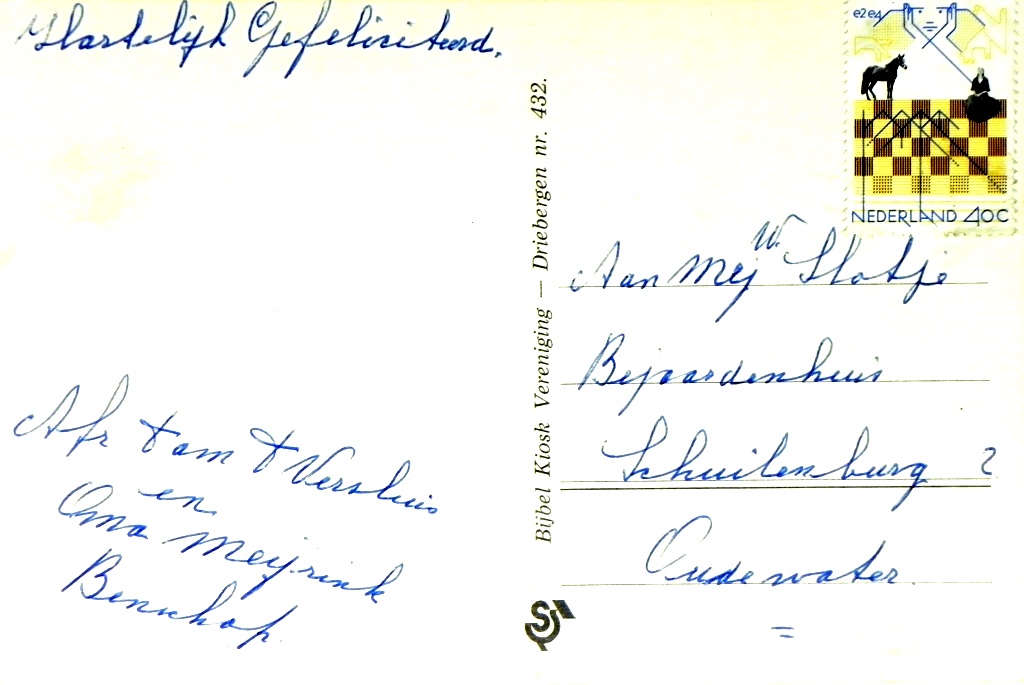 Hartelijk Gefeliciteerd.
Afz Fam T Versluis
en
Oma Meyrink
Benschop.
Bijbel Kiosk Vereniging — Driebergen nr. 432.
e2e4
NEDERLAND 40C
W.
Aan Mej Slotje
Bejaardenhuis
Schuilenburg 2
Oudewater.